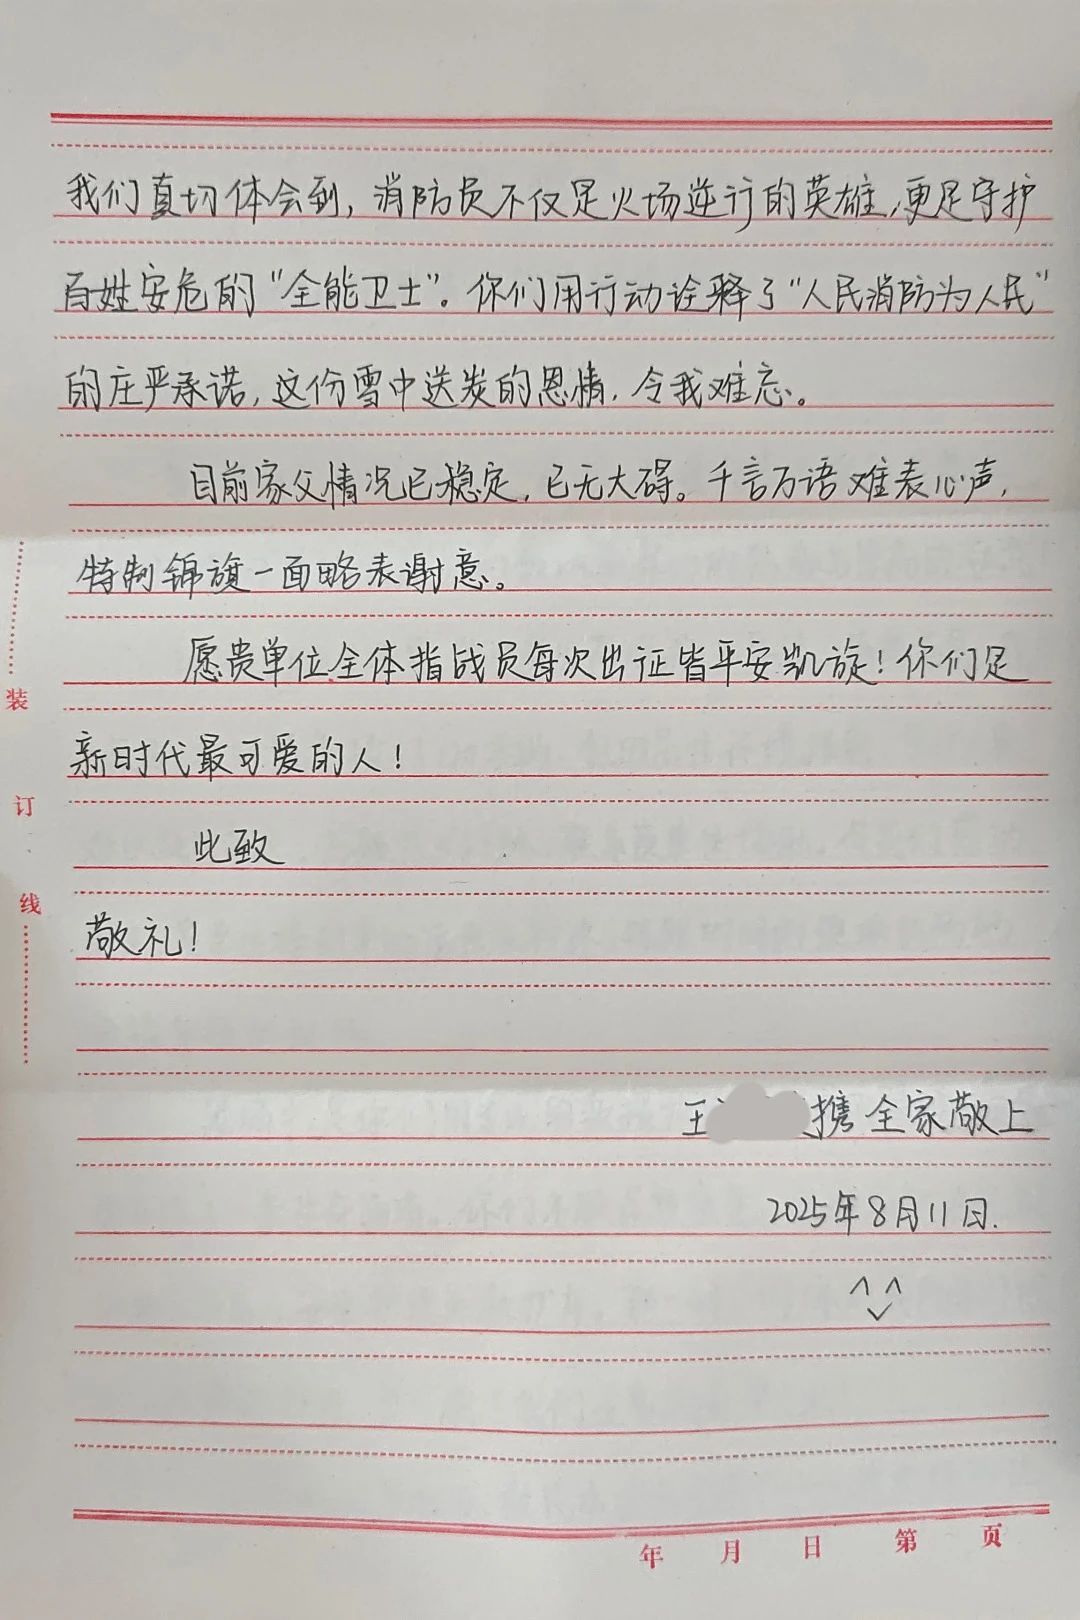 我们真切体会到，消防员不仅是火场逆行的英雄，更是守护
百姓安危的“全能卫士”。你们用行动诠释了“人民消防为人民”
的庄严承诺，这份雪中送炭的恩情，令我难忘。
目前家父情况已稳定，已无大碍。千言万语难表心声，
特制锦旗一面略表谢意。
愿贵单位全体指战员每次出征皆平安凯旋！你们是
新时代最可爱的人！
此致
敬礼！
王 携全家敬上
2025年8月11日.
装
订
线
年 月 日 第 页